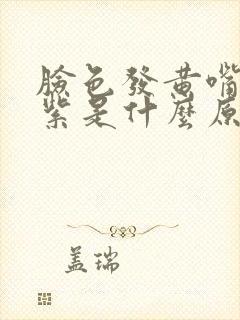 臉色發黃嘴
紫是什麼原
盖瑞